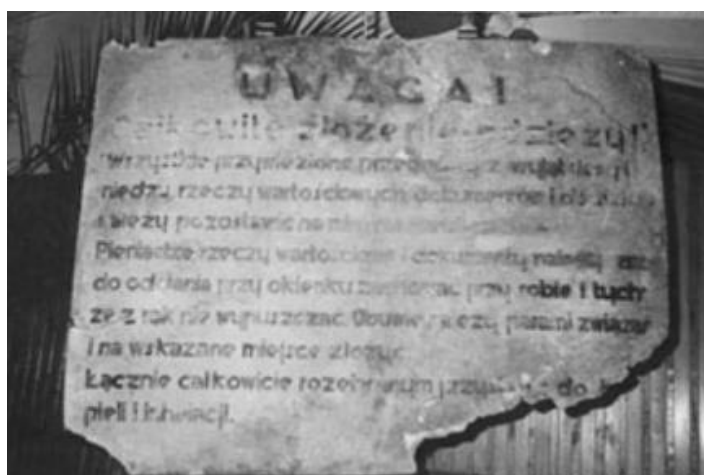 UWAGA!
całkowite złożenie odzieży!
wszystkie przyniezione przedmioty z
niędzy, rzeczy wartościowych, dokumentów i
należy pozostawić na
Pieniądze rzeczy wartościowe i dokumenty należy
do oddania przy okienku zachować przy sobie i tych
że z rąk nie wypuszczać. Obuwie należy parami związać
i na wskazane miejsce złożyć.
Łącznie całkowicie rozebranym do
pieli i inhalacji.